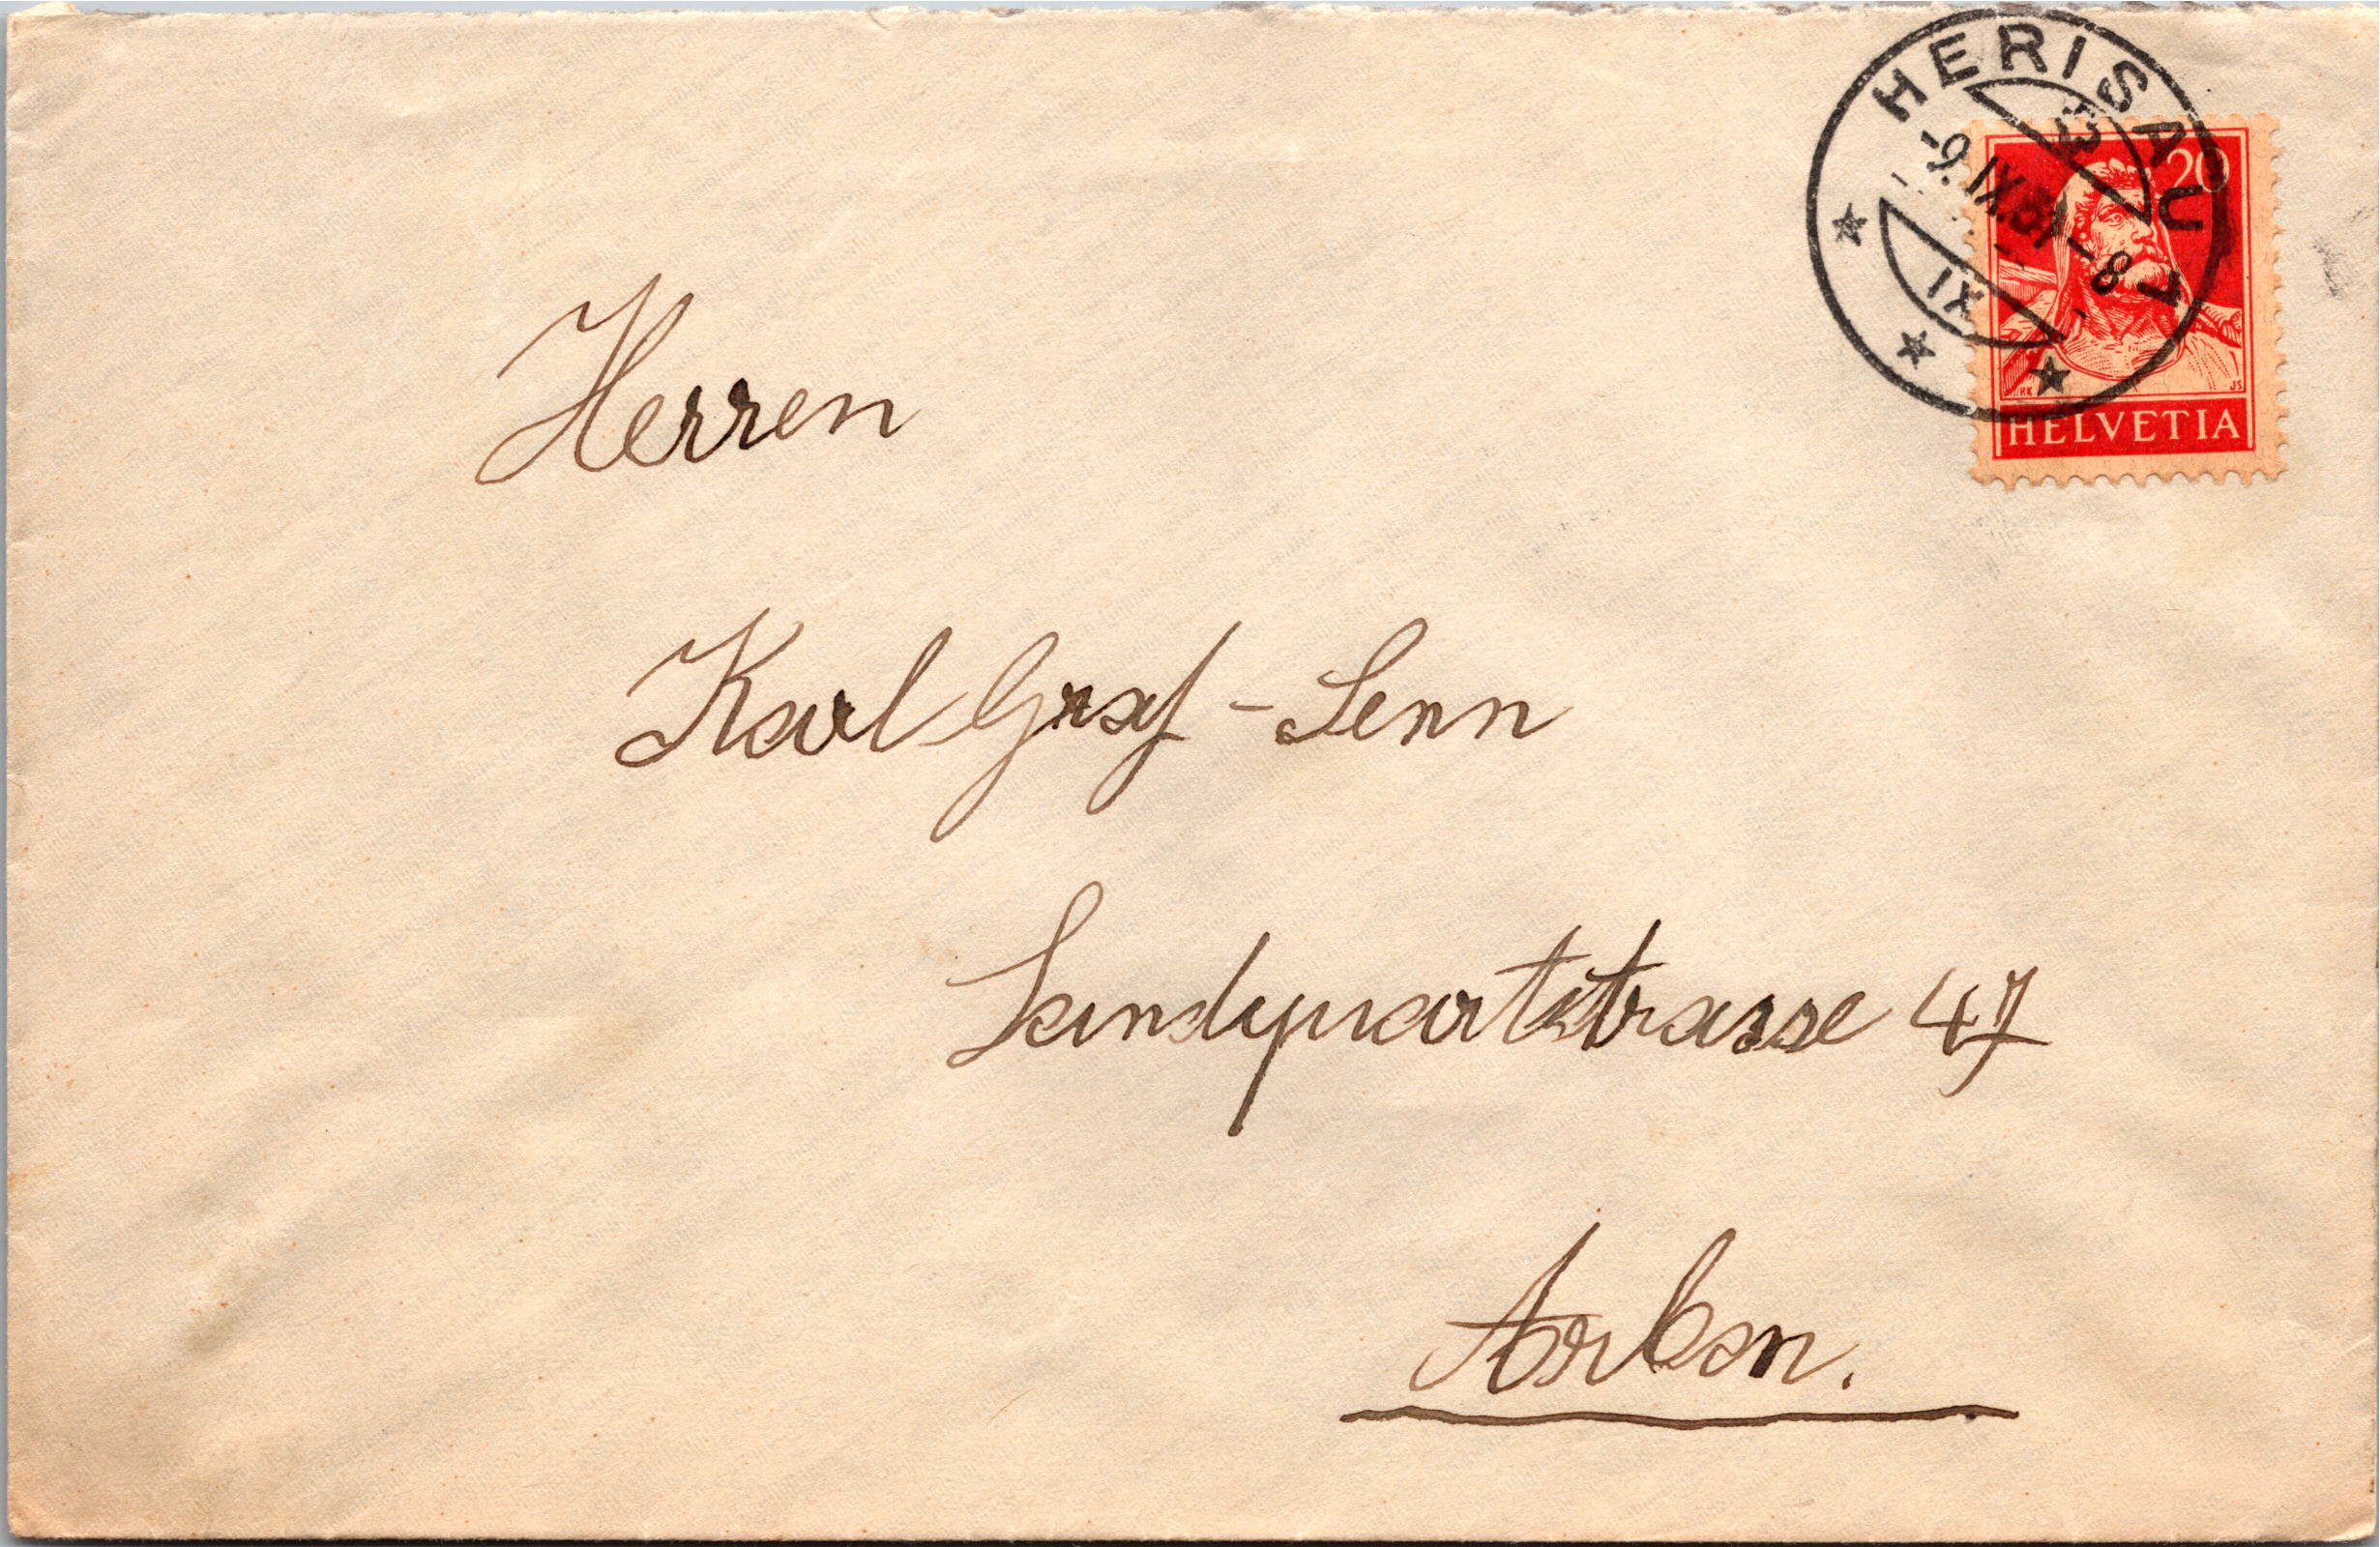 HERISAU 1
-9.IX.31-8
IX
20
HELVETIA
Herren
Karl Graf - Senn
Landquartstrasse 47
Arbon.